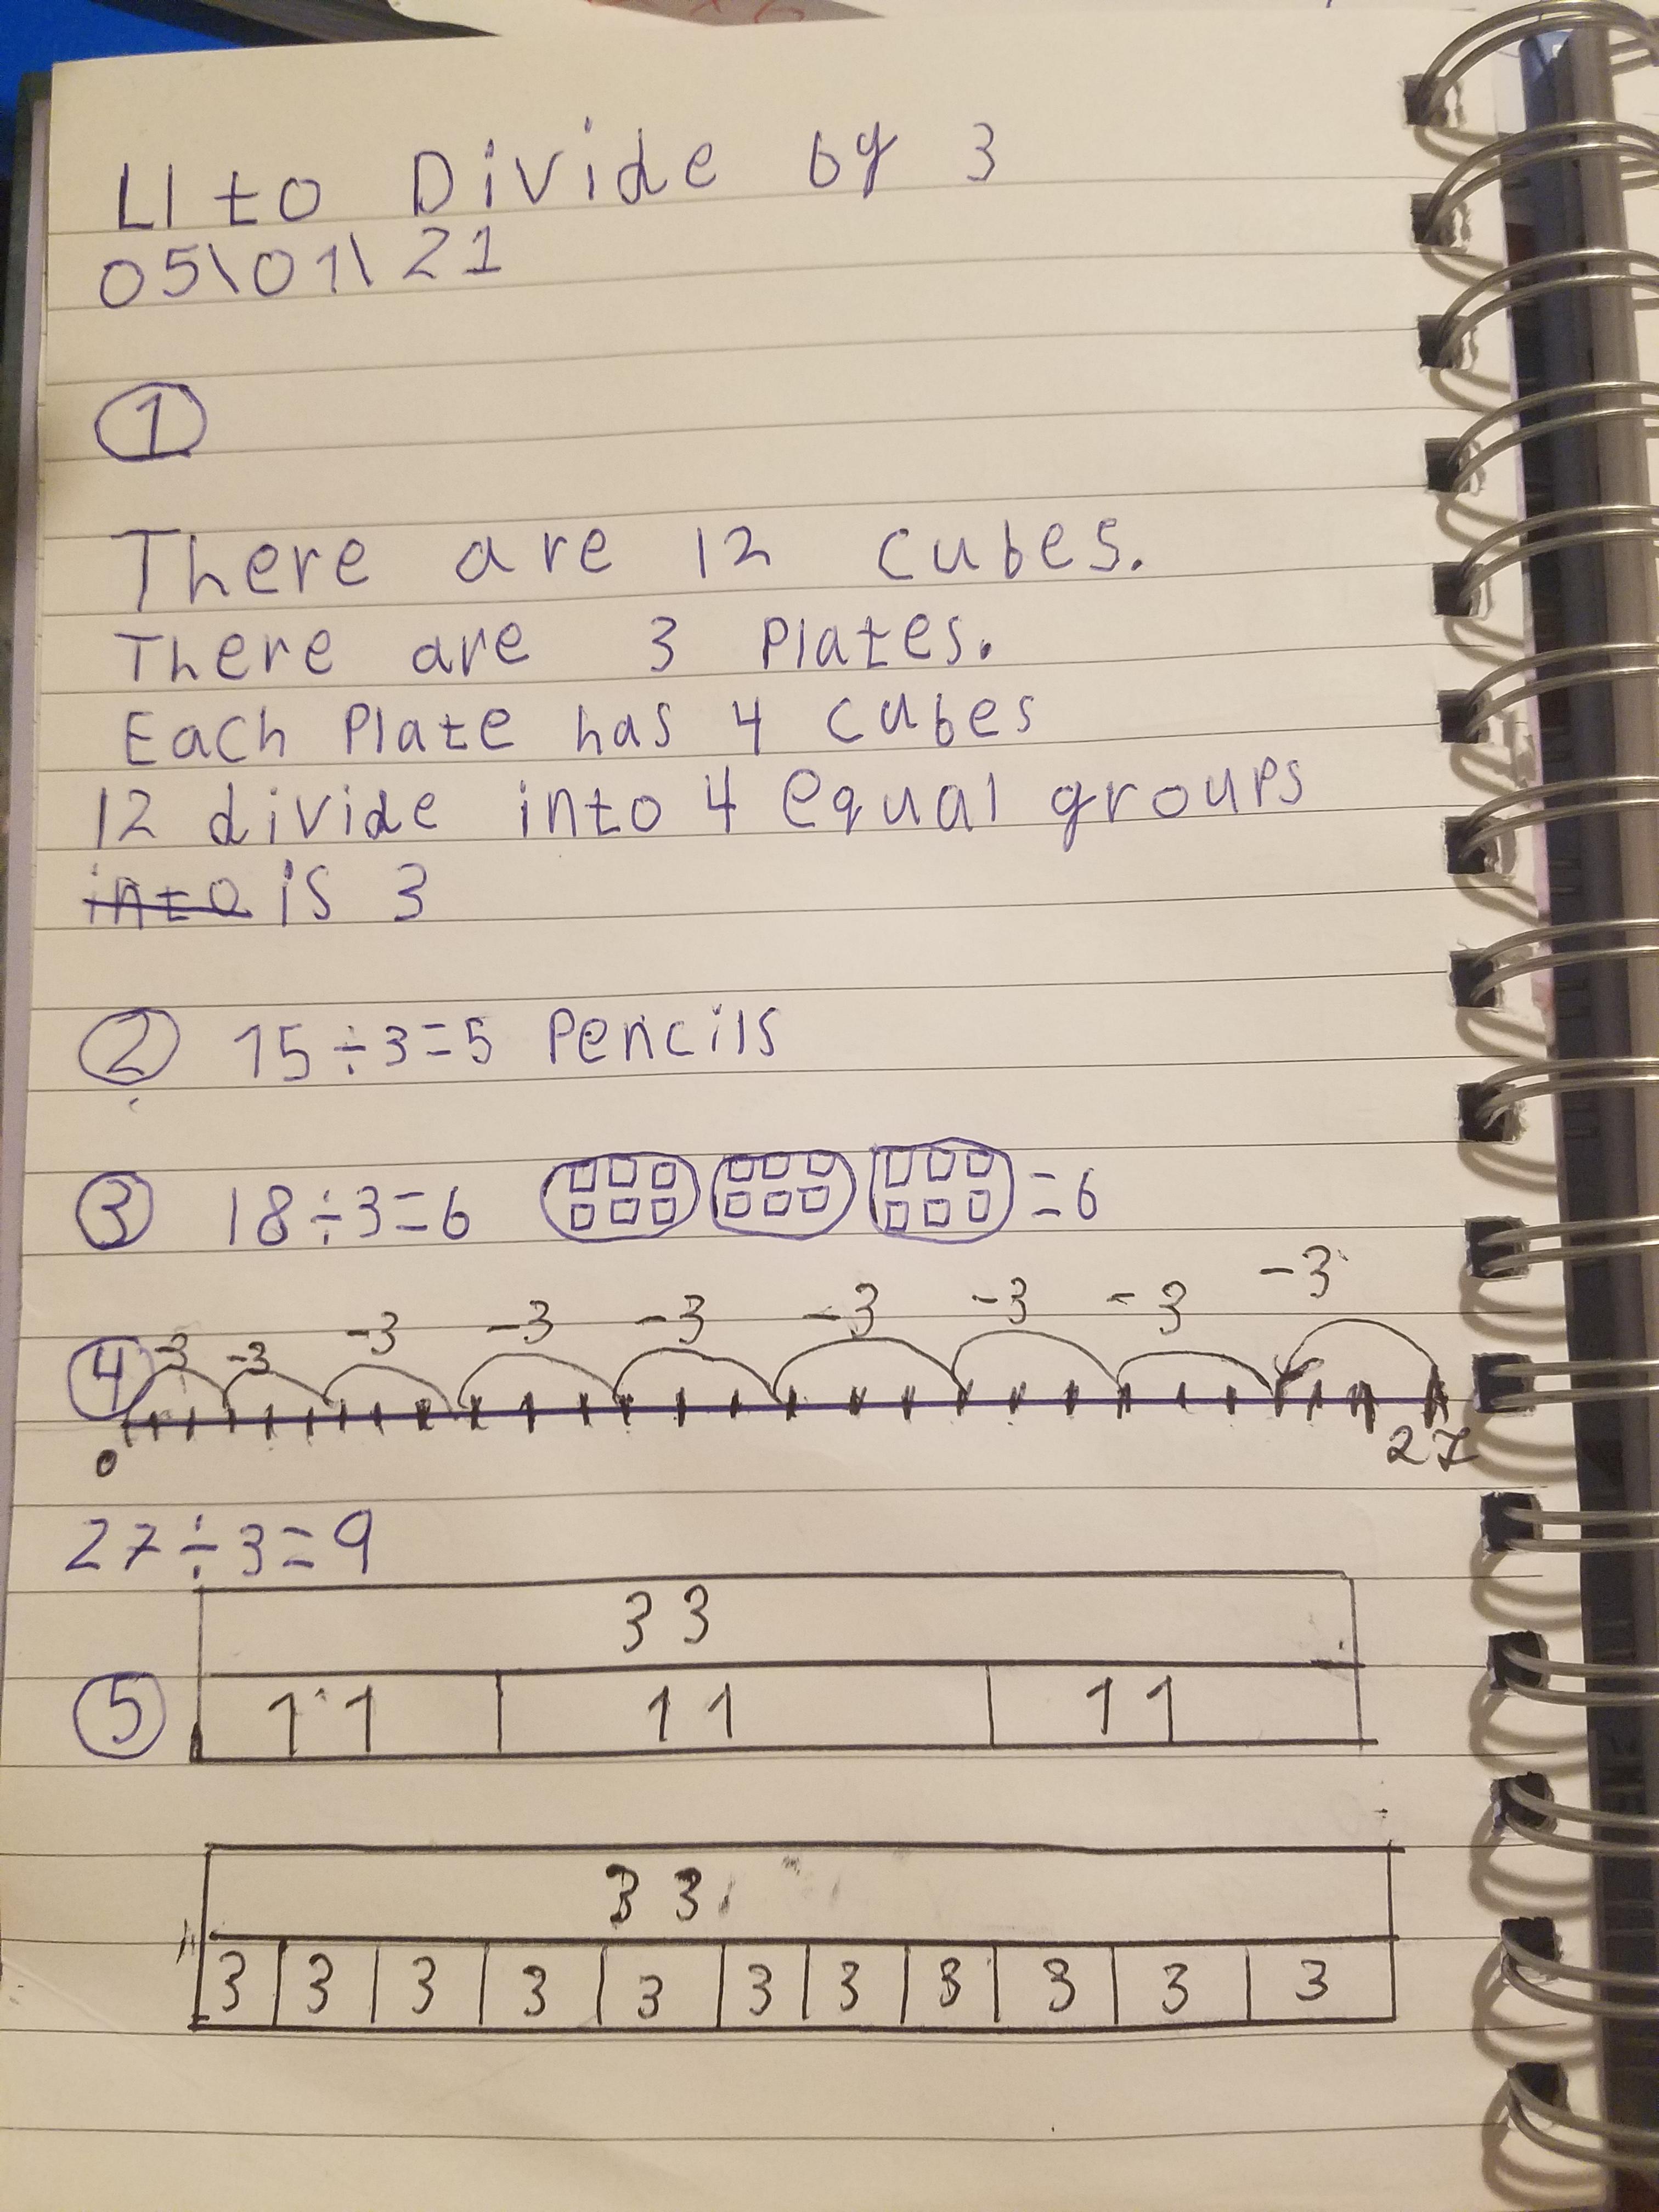 LI to Divide by 3
05\01\21
1
There are 12 cubes.
There are 3 Plates.
Each Plate has 4 cubes
12 divide into 4 equal groups
into is 3
2 15÷3=5 Pencils
3 18÷3=6 =6
-3 -3 -3 -3 -3 -3 -3 -3 -3
4
0 27
27÷3=9
33
5 11 11 11
33
3 3 3 3 3 3 3 3 3 3 3